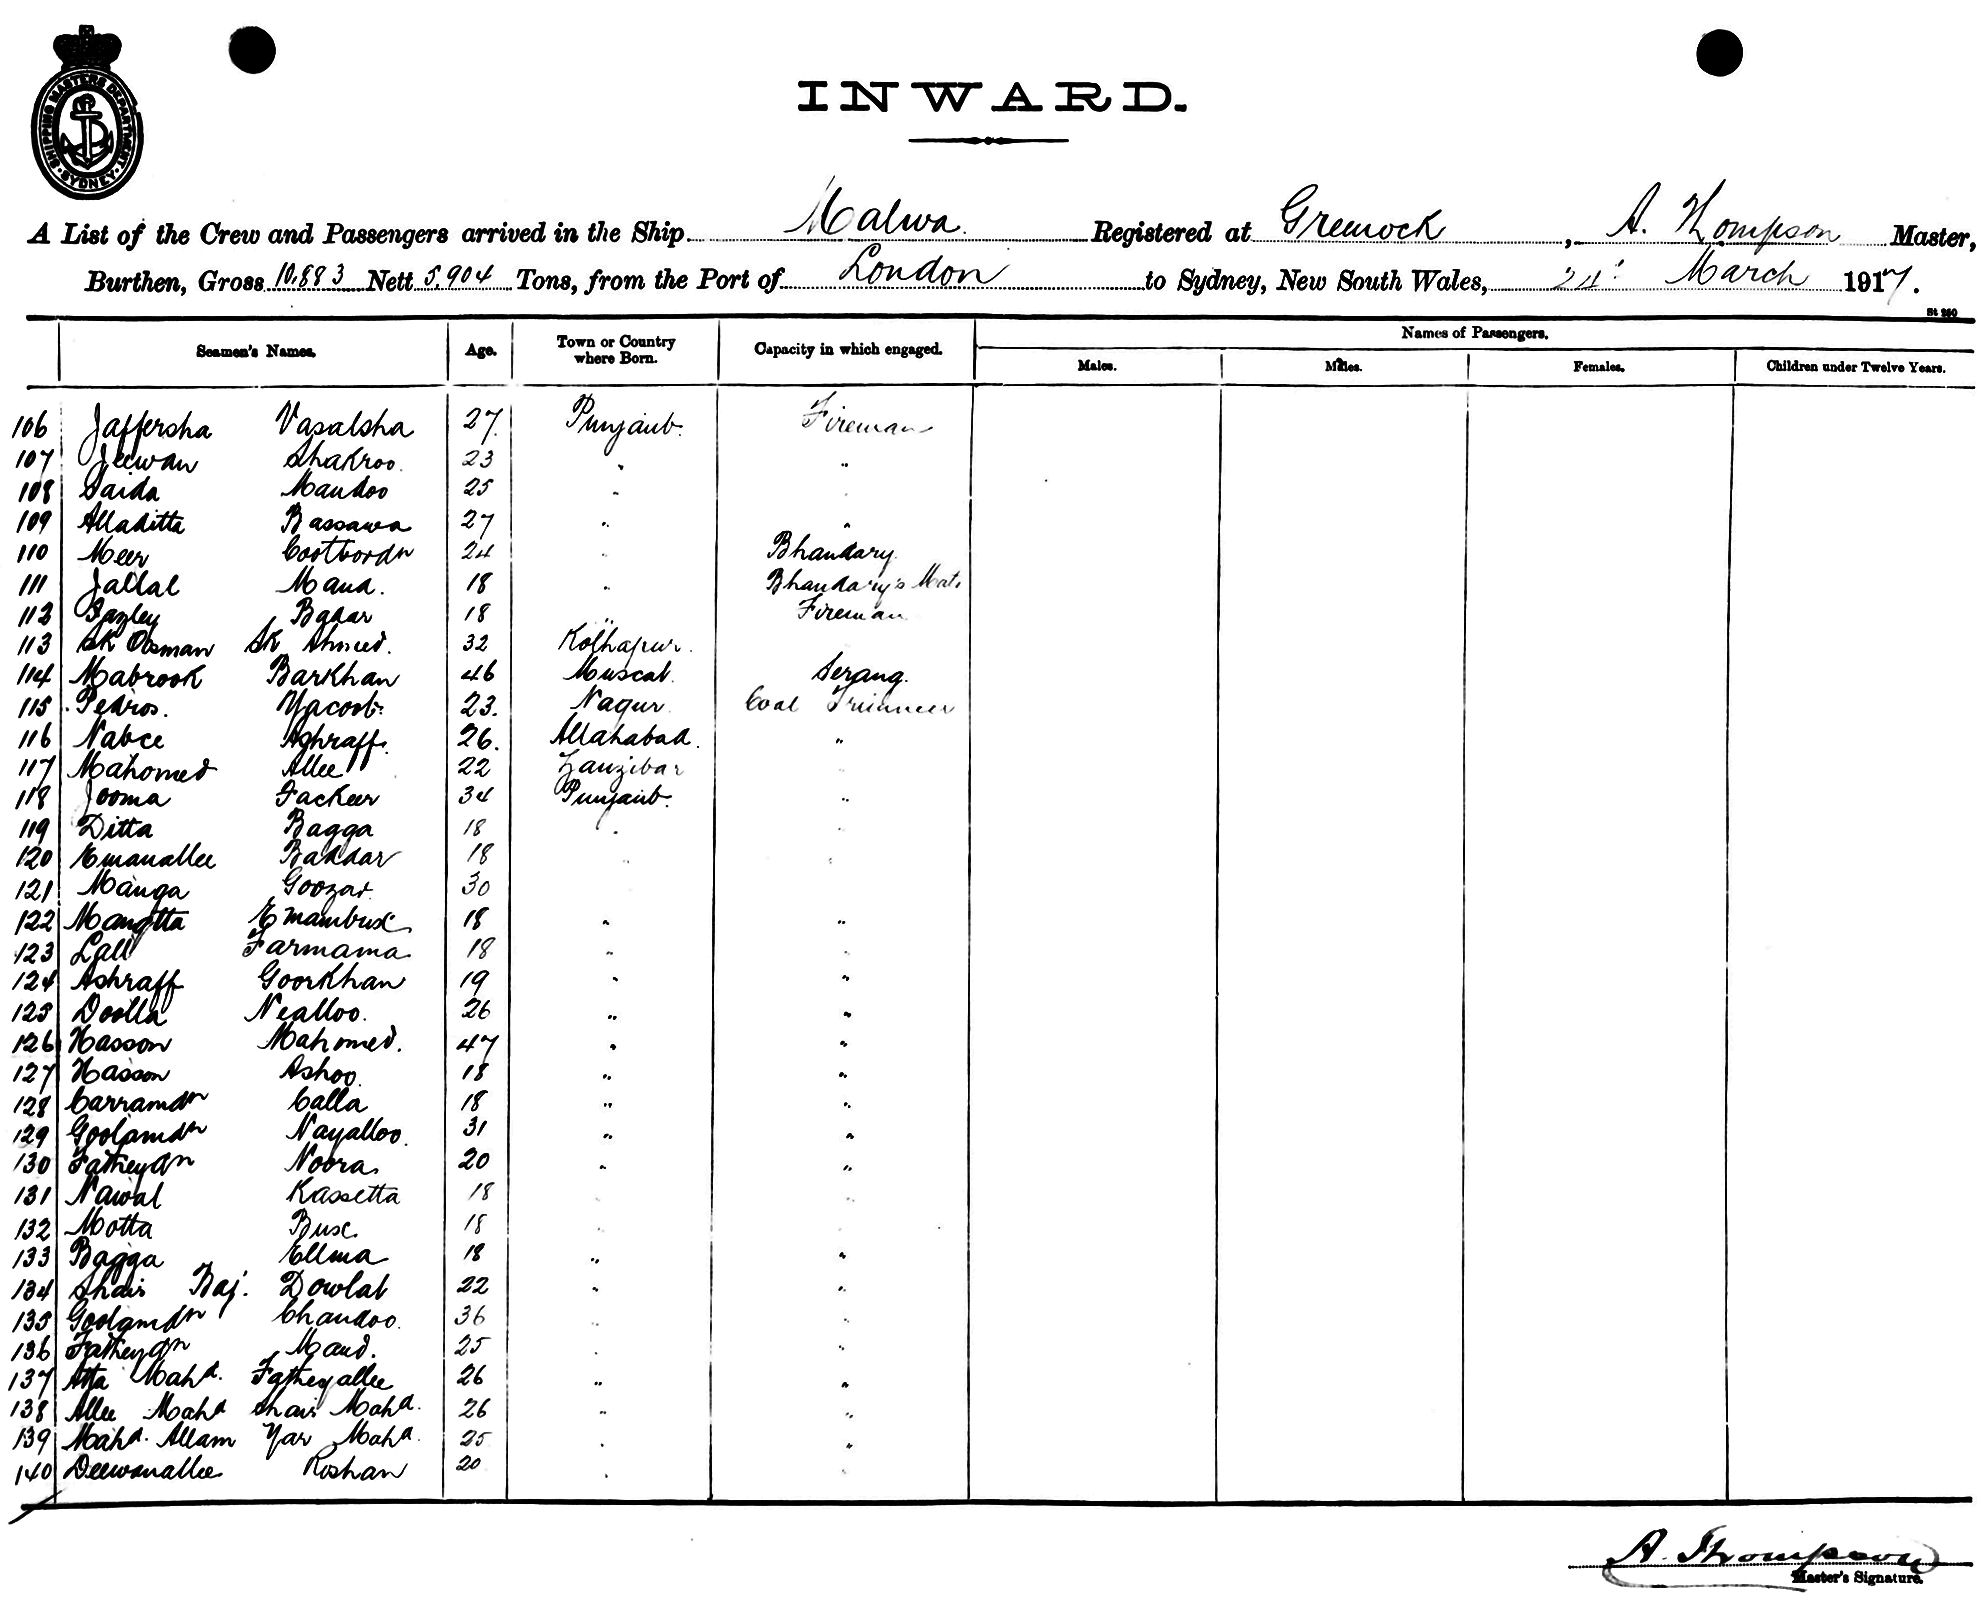 SHIPPING MASTERS DEPARTMENT
SYDNEY
INWARD.
A List of the Crew and Passengers arrived in the Ship Malwa Registered at Greenock, A. Thompson Master,
Burthen, Gross 10,883 Nett 5,904 Tons, from the Port of London to Sydney, New South Wales, 24th March 1917.
St 250
Seamen's Names. Age. Town or Country where Born. Capacity in which engaged. Names of Passengers.
Males. Males. Females. Children under Twelve Years.
106 Jaffersha Vasalsha 27. Punjaub. Fireman
107 Jeewan Shakroo. 23 " "
108 Saida Mandoo 25 " "
109 Alladitta Bassawa 27 " "
110 Meer Cootbordn 24 " Bhandary.
111 Jallal Mana. 18 " Bhandary's Mate
112 Fazley Badar 18 " Fireman
113 Sk Oosman Sk Ahmed. 32 Kolhapur.
114 Mabrook Barkhan 46 Muscat. Serang.
115 Pedros. Yacoob. 23. Nagur Coal Trimmer
116 Nabee Ashraff. 26. Allahabad. "
117 Mahomed Allee 22 Zanzibar "
118 Jooma Fackeer 34 Punjaub. "
119 Ditta Bagga 18 " "
120 Emanallee Baddar 18 " "
121 Manga Goozar 30
122 Mangtta Emambux 18 " "
123 Lall Farmama 18 " "
124 Ashraff Goorkhan 19 " "
125 Doolla Nealloo. 26 " "
126 Hasson Mahomed. 47 " "
127 Hasson Ashoo. 18 " "
128 Carramdn Calla 18 " "
129 Goolamdn Nayalloo. 31 " "
130 Fatheydn Noora. 20 " "
131 Nawal Kassetta 18 " "
132 Motta Bux. 18 " "
133 Bagga Ellma 18 " "
134 Shair Baj. Dowlat 22 " "
135 Goolamdn Chandoo. 36 " "
136 Fatheydn Maud. 25 " "
137 Atta Mahd. Fatheyallee 26 " "
138 Allee Mahd Shair Mahd. 26 " "
139 Mahd. Allam Yar Mahd. 25 " "
140 Deewanallee Roshan 20 " "
A. Thompson
Master's Signature.